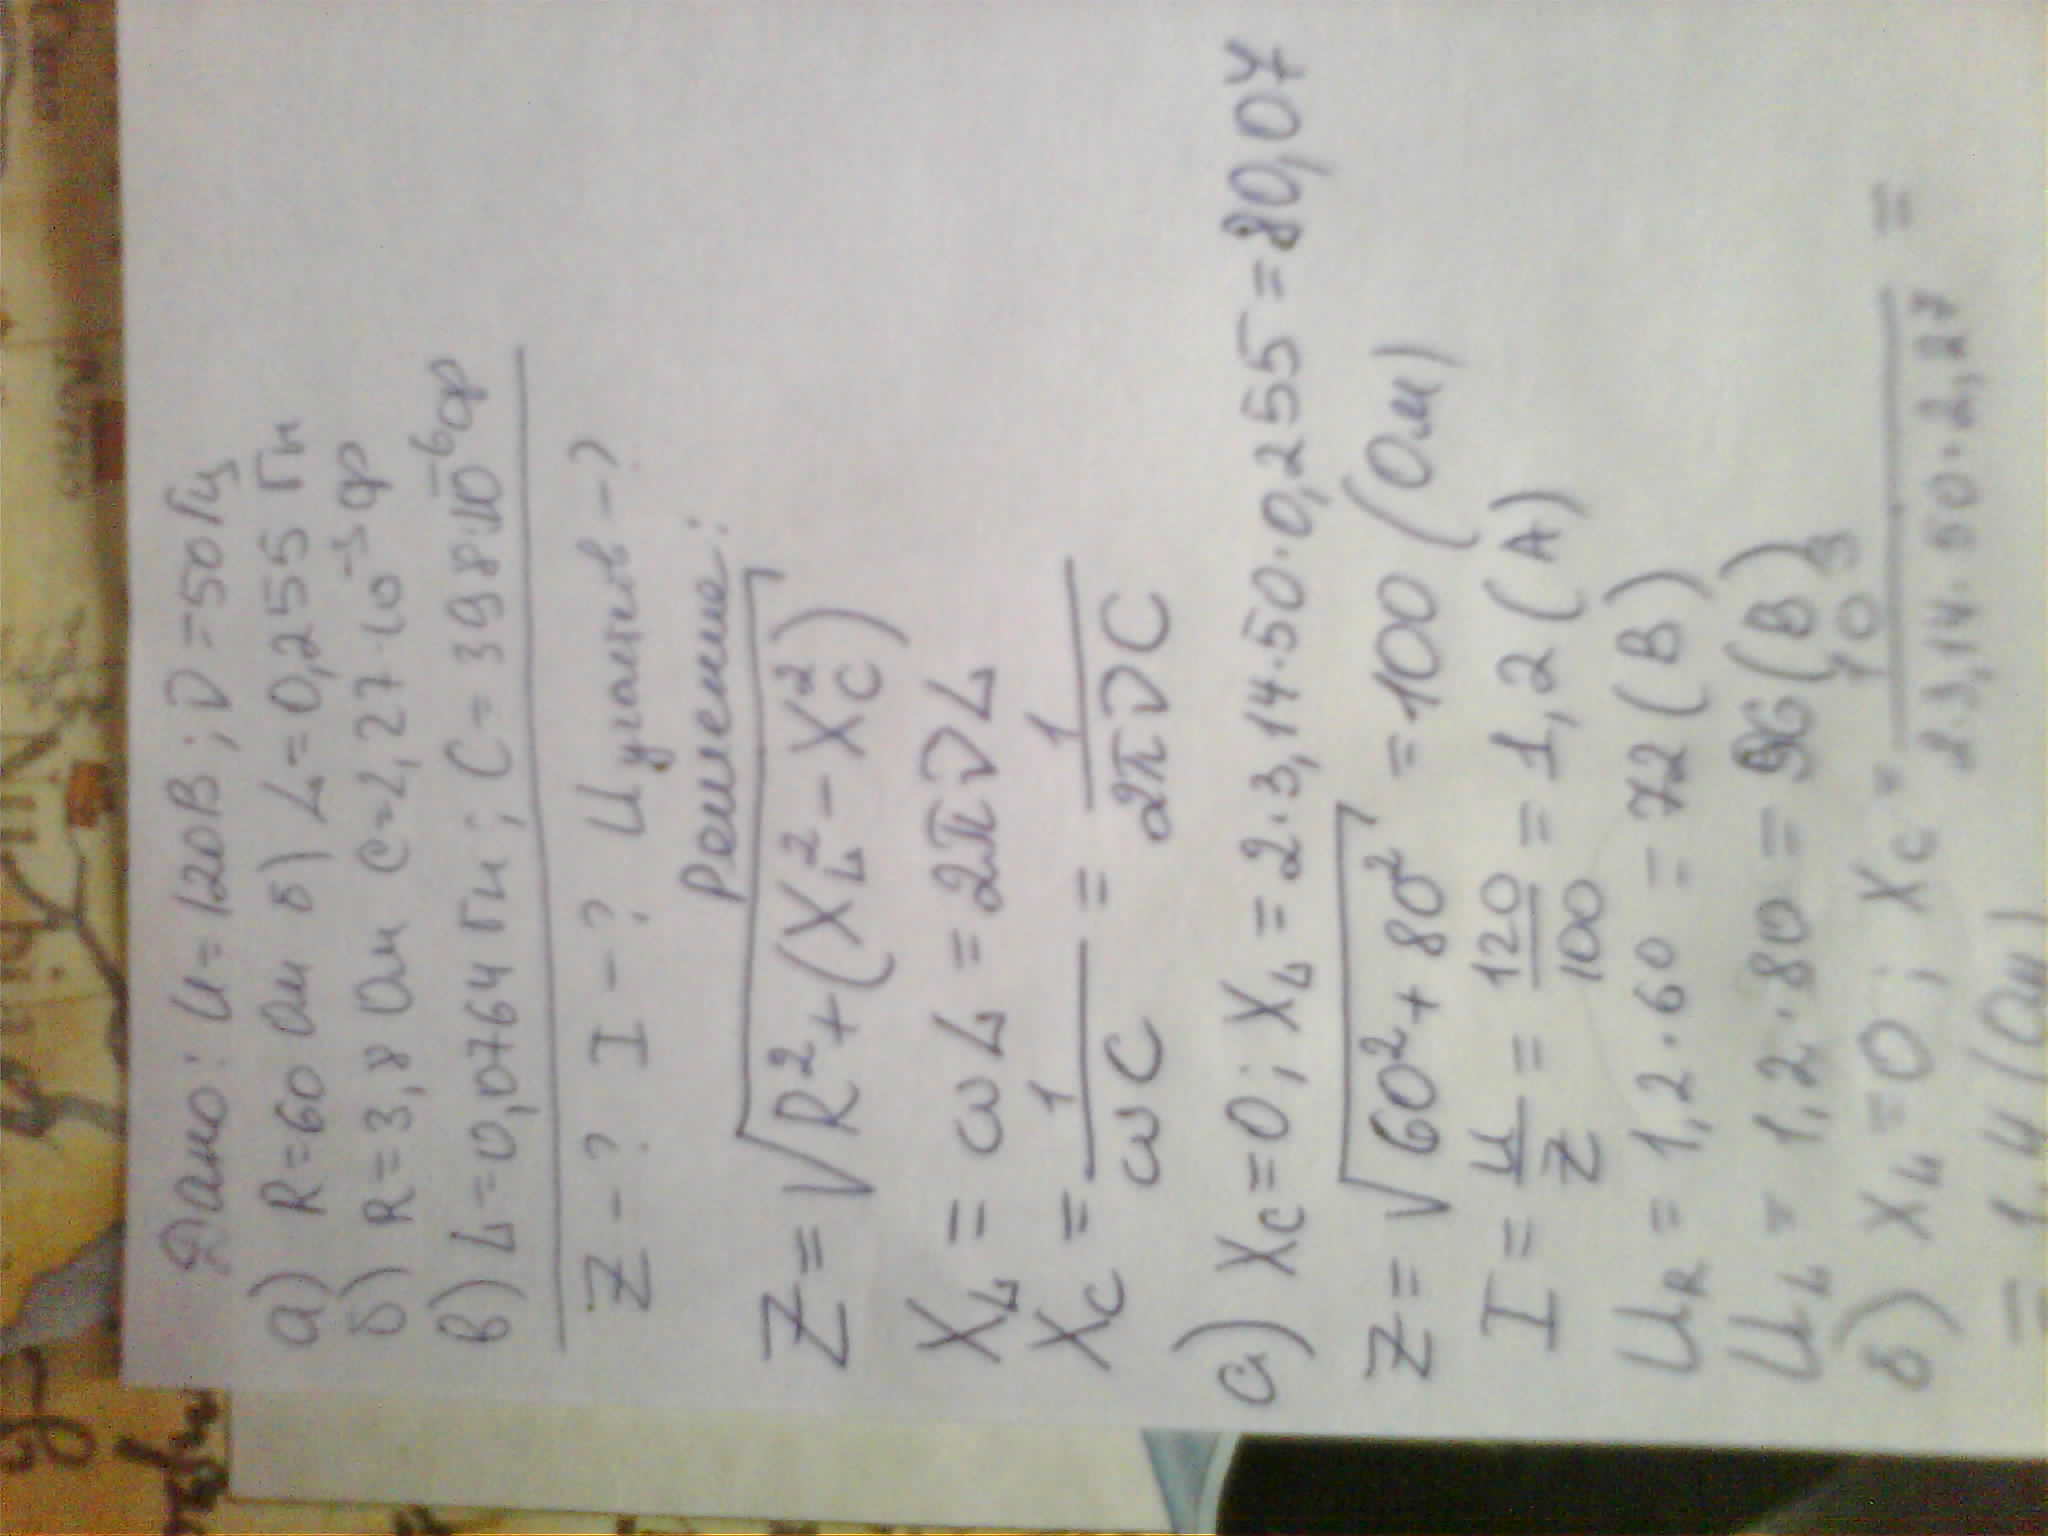 Дано: U=120В; ν=50Гц
а) R=60 Ом б) L=0,255 Гн
б) R=3,8 Ом C=2,27·10⁻³ф
в) L=0,0764 Гн; C=398·10⁻⁶ф
Z-? I-? U участков-?
Решение:
Z=√R²+(X_L²-X_C²)
X_L=ωL=2πνL
X_C=1/ωC=1/2πνC
а) X_C=0; X_L=2·3,14·50·0,255=80,07
Z=√60²+80²=100 (Ом)
I=U/Z=120/100=1,2(А)
U_R=1,2·60=72(В)
U_L=1,2·80=96(В)
б) X_L=0; X_C=10³/2·3,14·50·2,27=
=1,4(Ом)